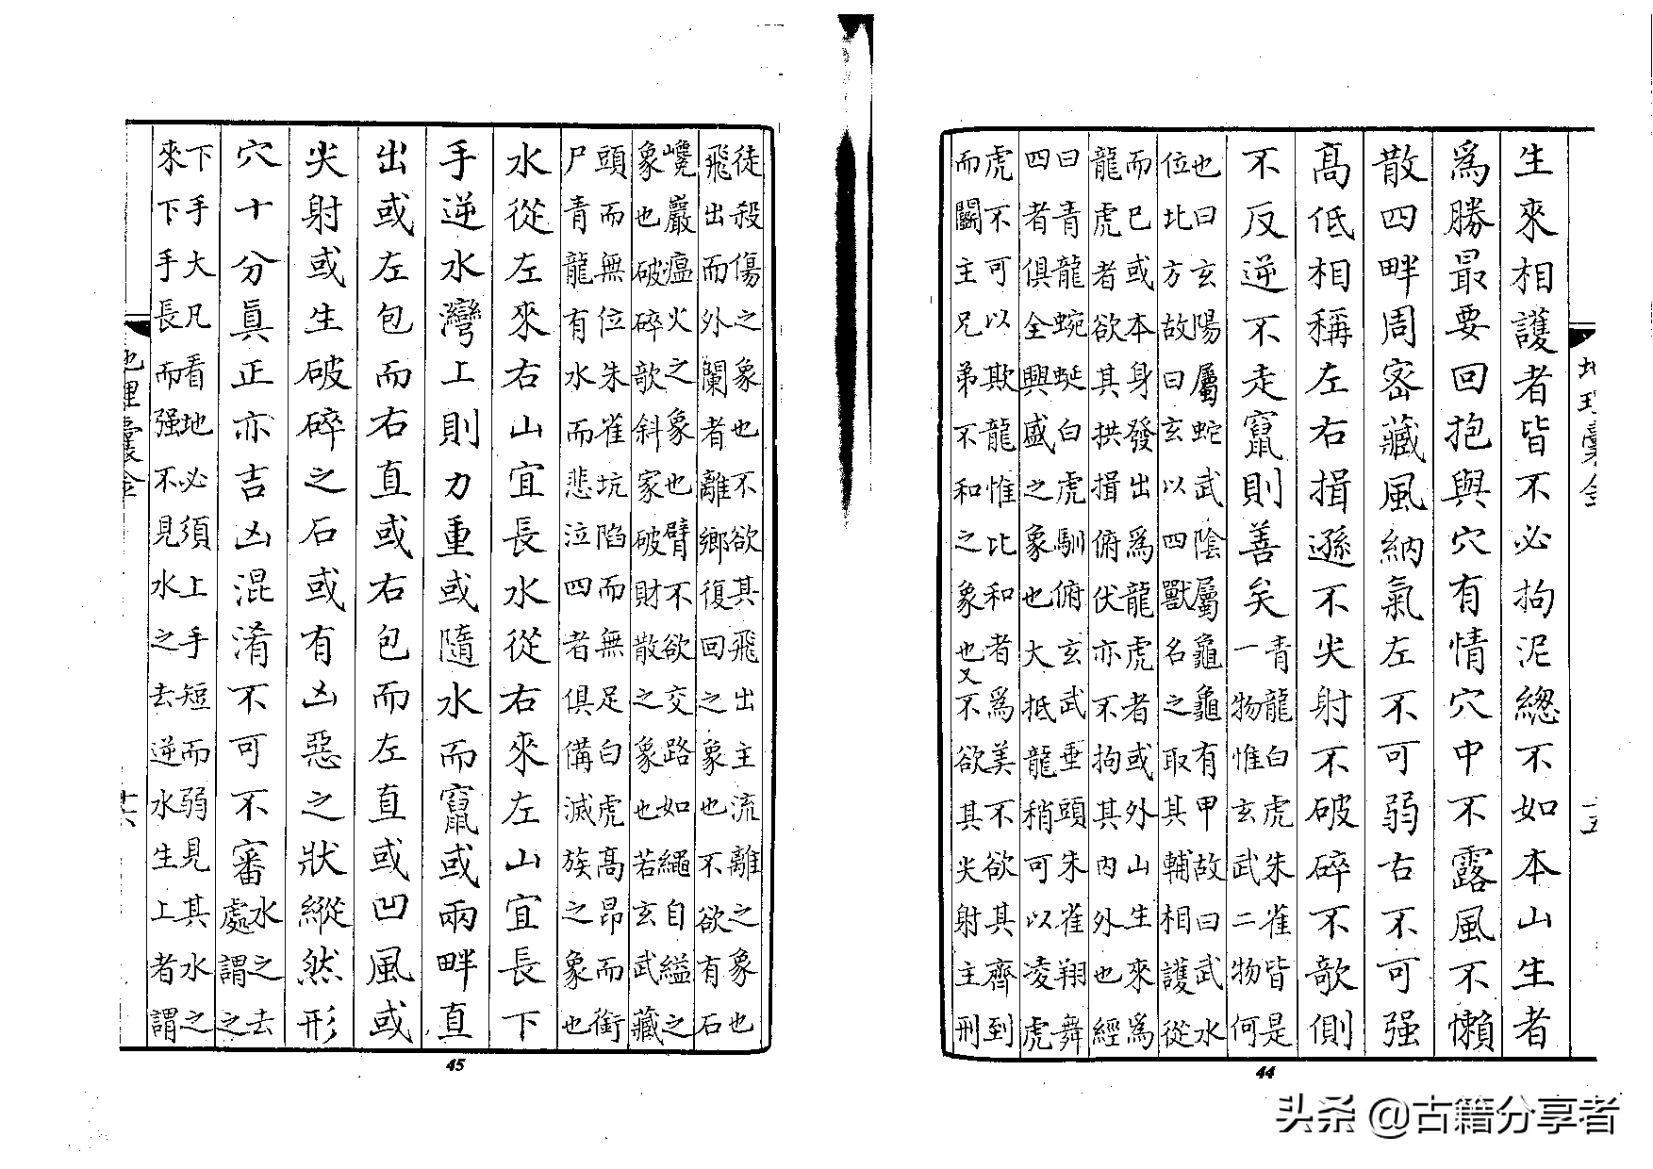 地理囊金
十五
生來相護者皆不必拘泥總不如本山生者
爲勝最要回抱與穴有情穴中不露風不懶
散四畔周密藏風納氣左不可弱右不可强
高低相稱左右揖遜不尖射不破碎不欹側
不反逆不走竄則善矣
青龍白虎朱雀皆是
一物惟玄武二物何
也曰玄陽屬蛇武陰屬龜龜有甲故曰武水
位北方故曰玄以四獸名之取其輔相護從
而已或本身發出爲龍虎者或外山生來爲
龍虎者欲其拱揖俯伏亦不拘其內外也經
曰青龍蜿蜒白虎馴俯玄武垂頭朱雀翔舞
四者俱全興盛之象也大抵龍稍可以凌虎
虎不可以欺龍惟比和者爲美不欲其齊到
而鬭主兄弟不和之象也又不欲其尖射主刑
44
徒殺傷之象也不欲其飛出主流離之象也
飛出而外闌者離鄉復回之象也不欲有石
巉巖瘟火之象也臂不欲交路如繩自縊之
象也破碎歌斜家破財散之象也若玄武藏
頭而無位朱雀坑陷而無足白虎高昂而銜
尸青龍有水而悲泣四者俱備滅族之象也
水從左來右山宜長水從右來左山宜長下
手逆水灣上則力重或隨水而竄或兩畔直
出或左包而右直或右包而左直或凹風或
尖射或生破碎之石或有凶惡之狀縱然形
穴十分眞正亦吉凶混淆不可不審
水之去
處謂之
下手大凡看地必須上手短而弱見其水之
來下手長而强不見水之去逆水生上者謂
地理囊金
十六
45
头条 @古籍分享者